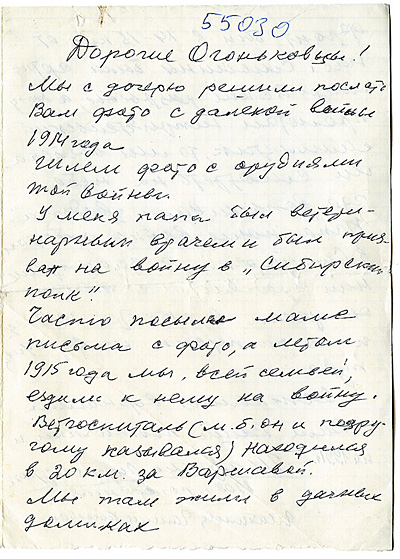 55030
Дорогие Огоньковцы!
Мы с дочерю решили послать
Вам фото с далекой войны
1914 года
Шлем фото с орудиями
той войны.
У меня папа был ветери-
нарным врачем и был приз-
ван на войну в „Сибирский
полк".
Часто посылал маме
письма с фото, а летом
1915 года мы, всей семьей,
ездили к нему на войну.
Ветгоспиталь (м.б. он и по дру-
гому назывался) находился
в 20 км. за Варшавой.
Мы там жили в дачных
домиках